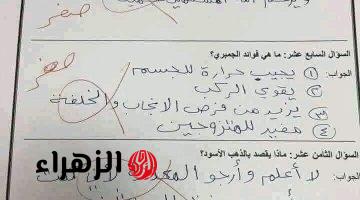 صفر
السؤال السابع عشر: ما هي فوائد الجمبري؟
الجواب: ① يجيب حرارة للجسم
② يقوي الركب
③ يزيد من فرص الانجاب والخلفة
④ مفيد للمتزوجين
صفر
الزهراء
السؤال الثامن عشر: ماذا يقصد بالذهب الأسود؟
الجواب: لا أعلم وأرجو